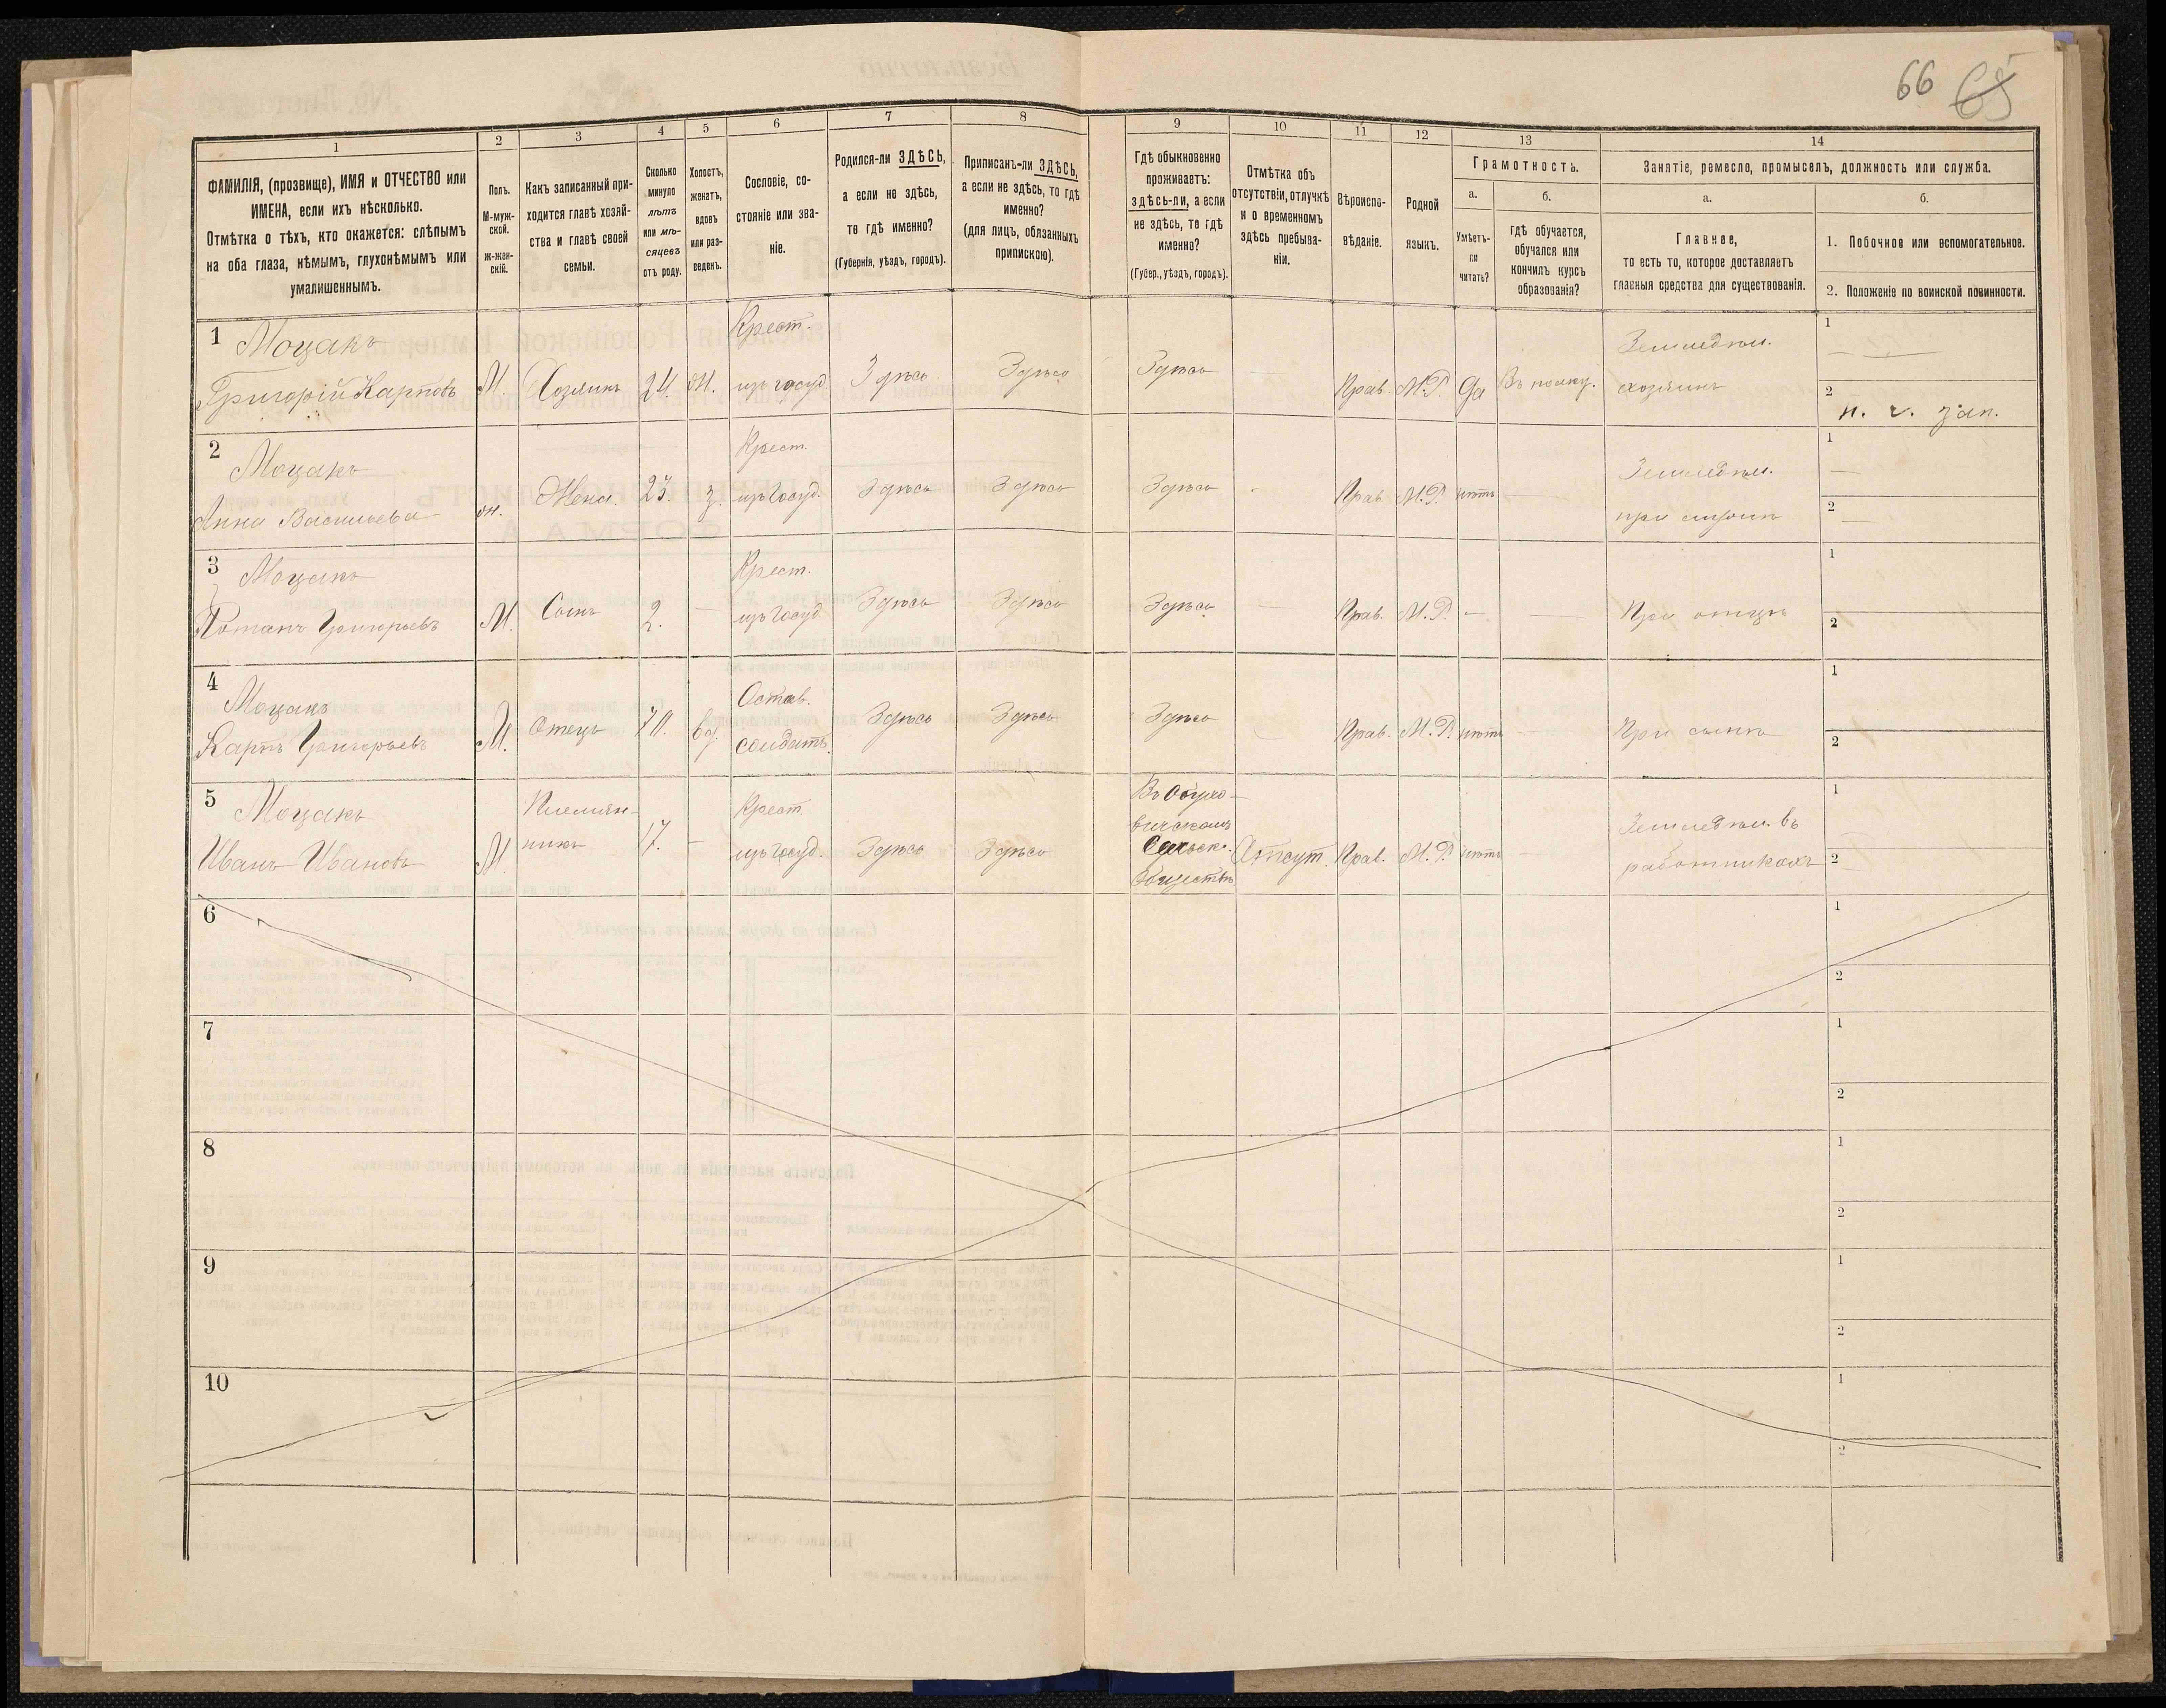 66 65
1 2 3 4 5 6 7 8 9 10 11 12 13 14
ФАМИЛІЯ, (прозвище), ИМЯ и ОТЧЕСТВО или
ИМЕНА, если ихъ нѣсколько.
Отмѣтка о тѣхъ, кто окажется: слѣпымъ
на оба глаза, нѣмымъ, глухонѣмымъ или
умалишеннымъ.
Полъ.
М-муж-
ской.
Ж-жен-
скій.
Какъ записанный при-
ходится главѣ хозяй-
ства и главѣ своей
семьи.
Сколько
минуло
лѣтъ
или мѣ-
сяцевъ
отъ роду.
Холостъ,
женатъ,
вдовъ
или раз-
веденъ.
Сословіе, со-
стояніе или зва-
ніе.
Родился-ли ЗДѢСЬ,
а если не здѣсь,
то гдѣ именно?
(Губернія, уѣздъ, городъ).
Приписанъ-ли ЗДѢСЬ,
а если не здѣсь, то гдѣ
именно?
(для лицъ, обязанныхъ
припискою).
Гдѣ обыкновенно
проживаетъ:
здѣсь-ли, а если
не здѣсь, то гдѣ
именно?
(Губер., уѣздъ, городъ).
Отмѣтка объ
отсутствіи, отлучкѣ
и о временномъ
здѣсь пребыва-
ніи.
Вѣроиспо-
вѣданіе.
Родной
языкъ.
Грамотность.
а.
Умѣетъ-
ли
читать?
б.
гдѣ обучается,
обучался или
кончилъ курсъ
образованія?
Занятіе, ремесло, промыселъ, должность или служба.
а.
Главное,
то есть то, которое доставляетъ
главныя средства для существованія.
б.
1. Побочное или вспомогательное.
2. Положеніе по воинской повинности.
1 Моцакъ Крест. Земледѣл. 1
Григорій Карповъ М. Хозяинъ 24. Ж. изъ госуд. Здѣсь Здѣсь Здѣсь Прав. М.Р. Да Въ полку. хозяинъ 2
н. ч. зап.
2 Моцакъ Крест. Земледѣл. 1
Анна Васильева ж. Жена. 23. з. изъ госуд. Здѣсь Здѣсь Здѣсь Прав. М.Р. нѣтъ при мужѣ 2
3 Моцакъ Крест. 1
Потапъ Григорьевъ М. Сынъ 2. — изъ госуд. Здѣсь Здѣсь Здѣсь Прав. М.Р. — При отцѣ 2
4 Моцакъ Остав. 1
Карпъ Григорьевъ М. Отецъ 70. вд. солдатъ. Здѣсь Здѣсь Здѣсь Прав. М.Р. нѣтъ При сынѣ 2
5 Моцакъ Племян- Крест. Земледѣл. въ 1
вичскомъ
Сельск.
Иванъ Ивановъ М. никъ 17. — изъ госуд. Здѣсь Здѣсь Отсут. Прав. М.Р. нѣтъ работникахъ 2
Обществѣ
6 1
2
7 1
2
8 1
2
9 1
2
10 1
2